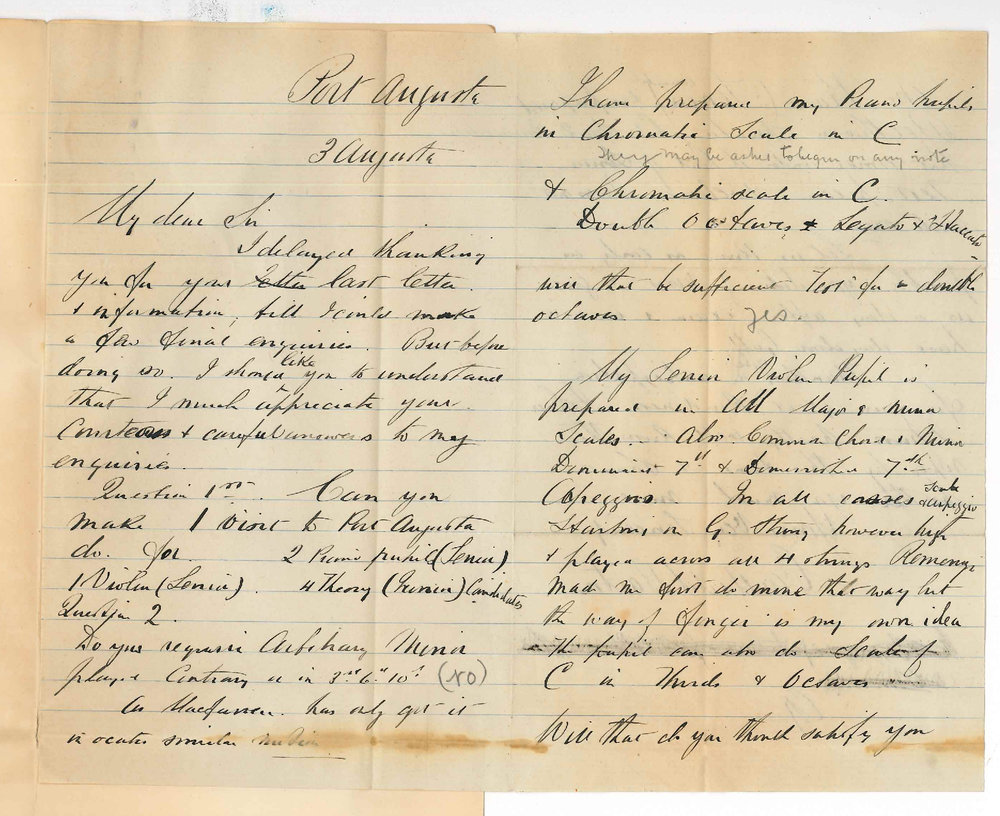 Port Augusta
3 Augusta
My dear Sir
I delayed thanking
you for your letter last letter
& information, till I could make
a few final enquiries. But before
doing so. I should like you to understand
that I much appreciate your
Courteous & careful answers to my
enquiries.
Question 1st. Can you
make 1 Visit to Port Augusta
do. for 2 Piano pupils (Senior)
1 Violin (Senior). 4 Theory (Junior) Candidates
Question 2.
Do you require Arbitrary Minor
played Contrary in 3rd 6th 10th (NO)
As Macfarren has only got it
in similar motion
I have prepared my Piano pupils
in Chromatic Scale in C
They may be asked to begin on any note
& Chromatic scale in C.
Double Octaves & Legato & Staccato
will that be sufficient Test for double
octaves yes.
My Senior Violin Pupil is
prepared in All Major & minor
Scales. Also Common Chord & Minor
Dominant 7th & Diminished 7th
Apeggios. In all cases Scale & arpeggio
Starting on G. String however high
& played across all 4 strings Remenyi
made me first do mine that way but
the way of finger is my own idea
The pupil can also do Scale of
C in Thirds & Octaves
Will that do you think satisfy you